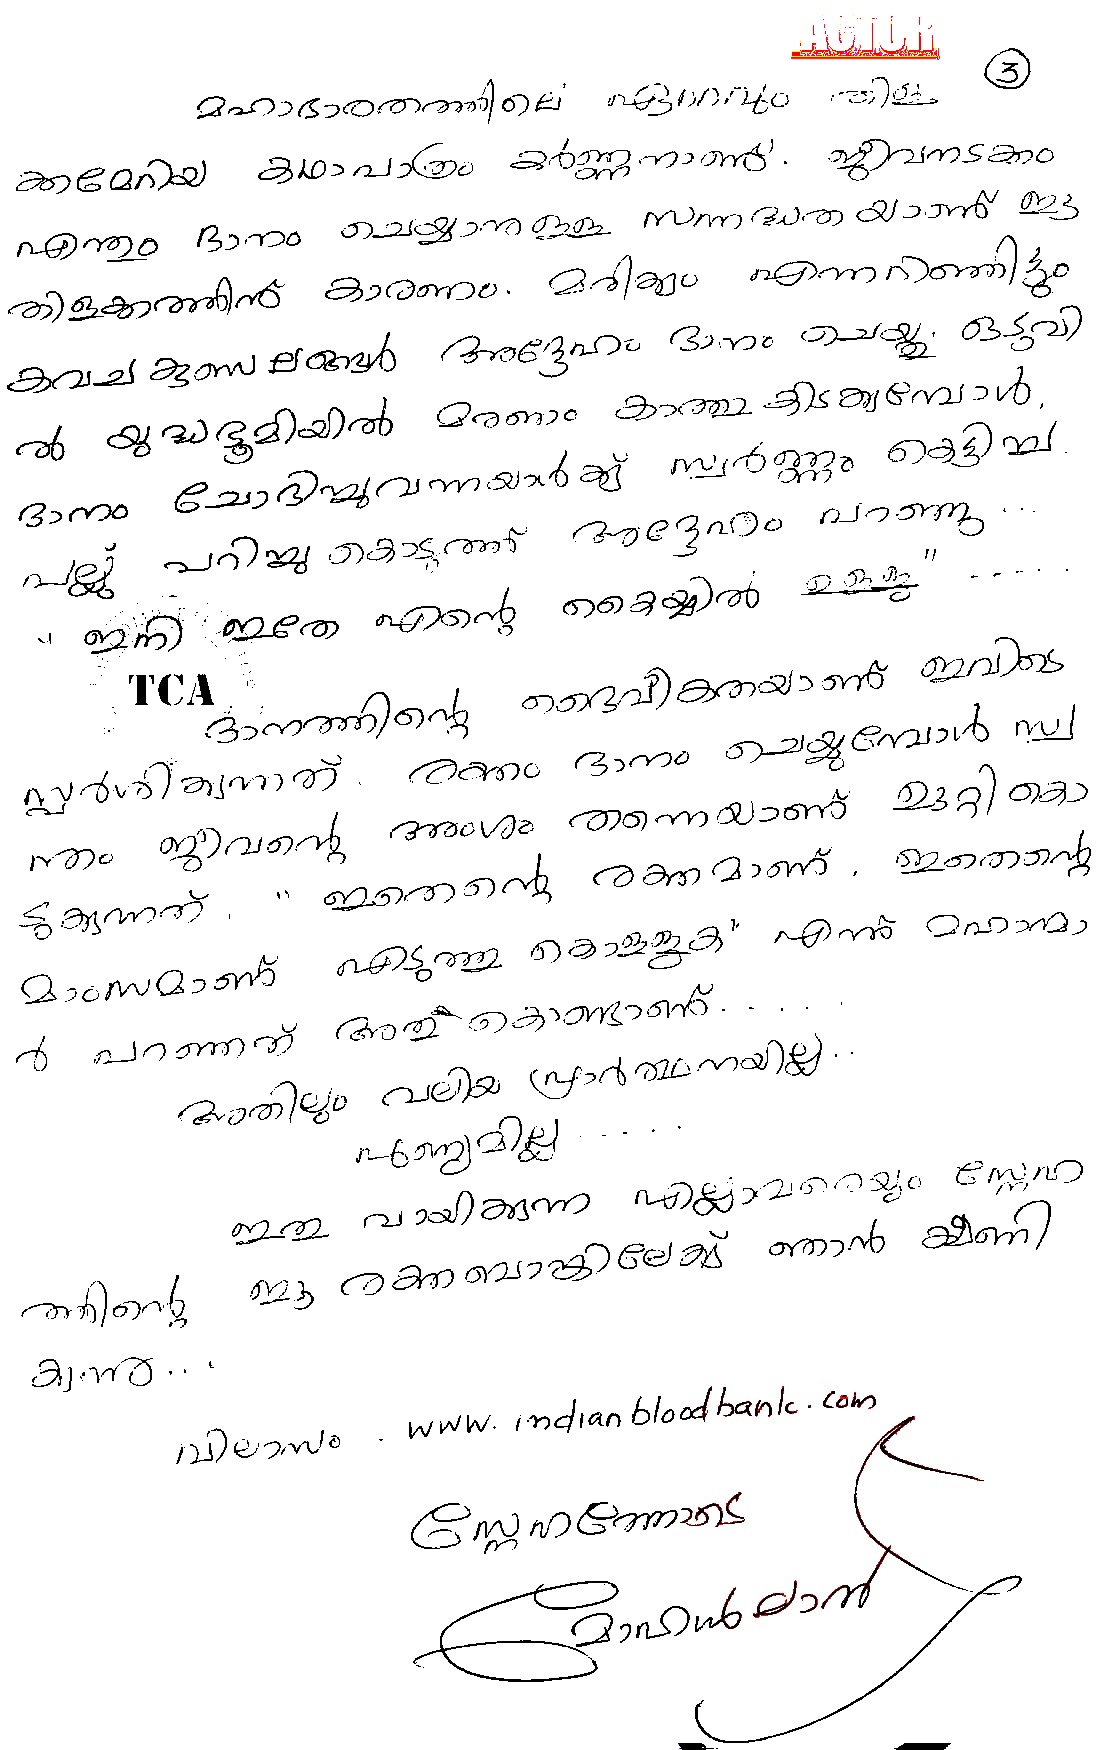 ACTOR
3
മഹാഭാരതത്തിലെ ഏറ്റവും തിള
ക്കമേറിയ കഥാപാത്രം കർണ്ണനാണ്. ജീവനടക്കം
എന്തും ദാനം ചെയ്യാനുള്ള സന്നദ്ധതയാണ് ഈ
തിളക്കത്തിന് കാരണം. മരിക്കും എന്നറിഞ്ഞിട്ടും
കവചകുണ്ഡലങ്ങൾ അദ്ദേഹം ദാനം ചെയ്തു. ഒടുവി
ൽ യുദ്ധഭൂമിയിൽ മരണം കാത്തുകിടക്കുമ്പോൾ,
ദാനം ചോദിച്ചുവന്നയാൾക്ക് സ്വർണ്ണം കെട്ടിച്ച
പല്ല് പറിച്ചുകൊടുത്ത് അദ്ദേഹം പറഞ്ഞു...
"ഇനി ഇതേ എന്റെ കൈയ്യിൽ ഉള്ളു" .....
TCA
ദാനത്തിന്റെ ദൈവീകതയാണ് ഇവിടെ
സ്പർശിക്കുന്നത്. രക്തം ദാനം ചെയ്യുമ്പോൾ സ്വ
ന്തം ജീവന്റെ അംശം തന്നെയാണ് മുറ്റികൊ
ടുക്കുന്നത്. "ഇതെന്റെ രക്തമാണ്, ഇതെന്റെ
മാംസമാണ് എടുത്തു കൊള്ളുക" എന്ന് മഹാന്മാ
ർ പറഞ്ഞത് അതു കൊണ്ടാണ്......
അതിലും വലിയ പ്രാർത്ഥനയില്ല..
പുണ്യമില്ല.....
ഇതു വായിക്കുന്ന എല്ലാവരെയും സ്നേഹ
ത്തിന്റെ ഈ രക്തബാങ്കിലേക്ക് ഞാൻ ക്ഷണി
ക്കുന്നു...
വിലാസം. www.indianbloodbank.com
സ്നേഹത്തോടെ
മോഹൻലാൽ